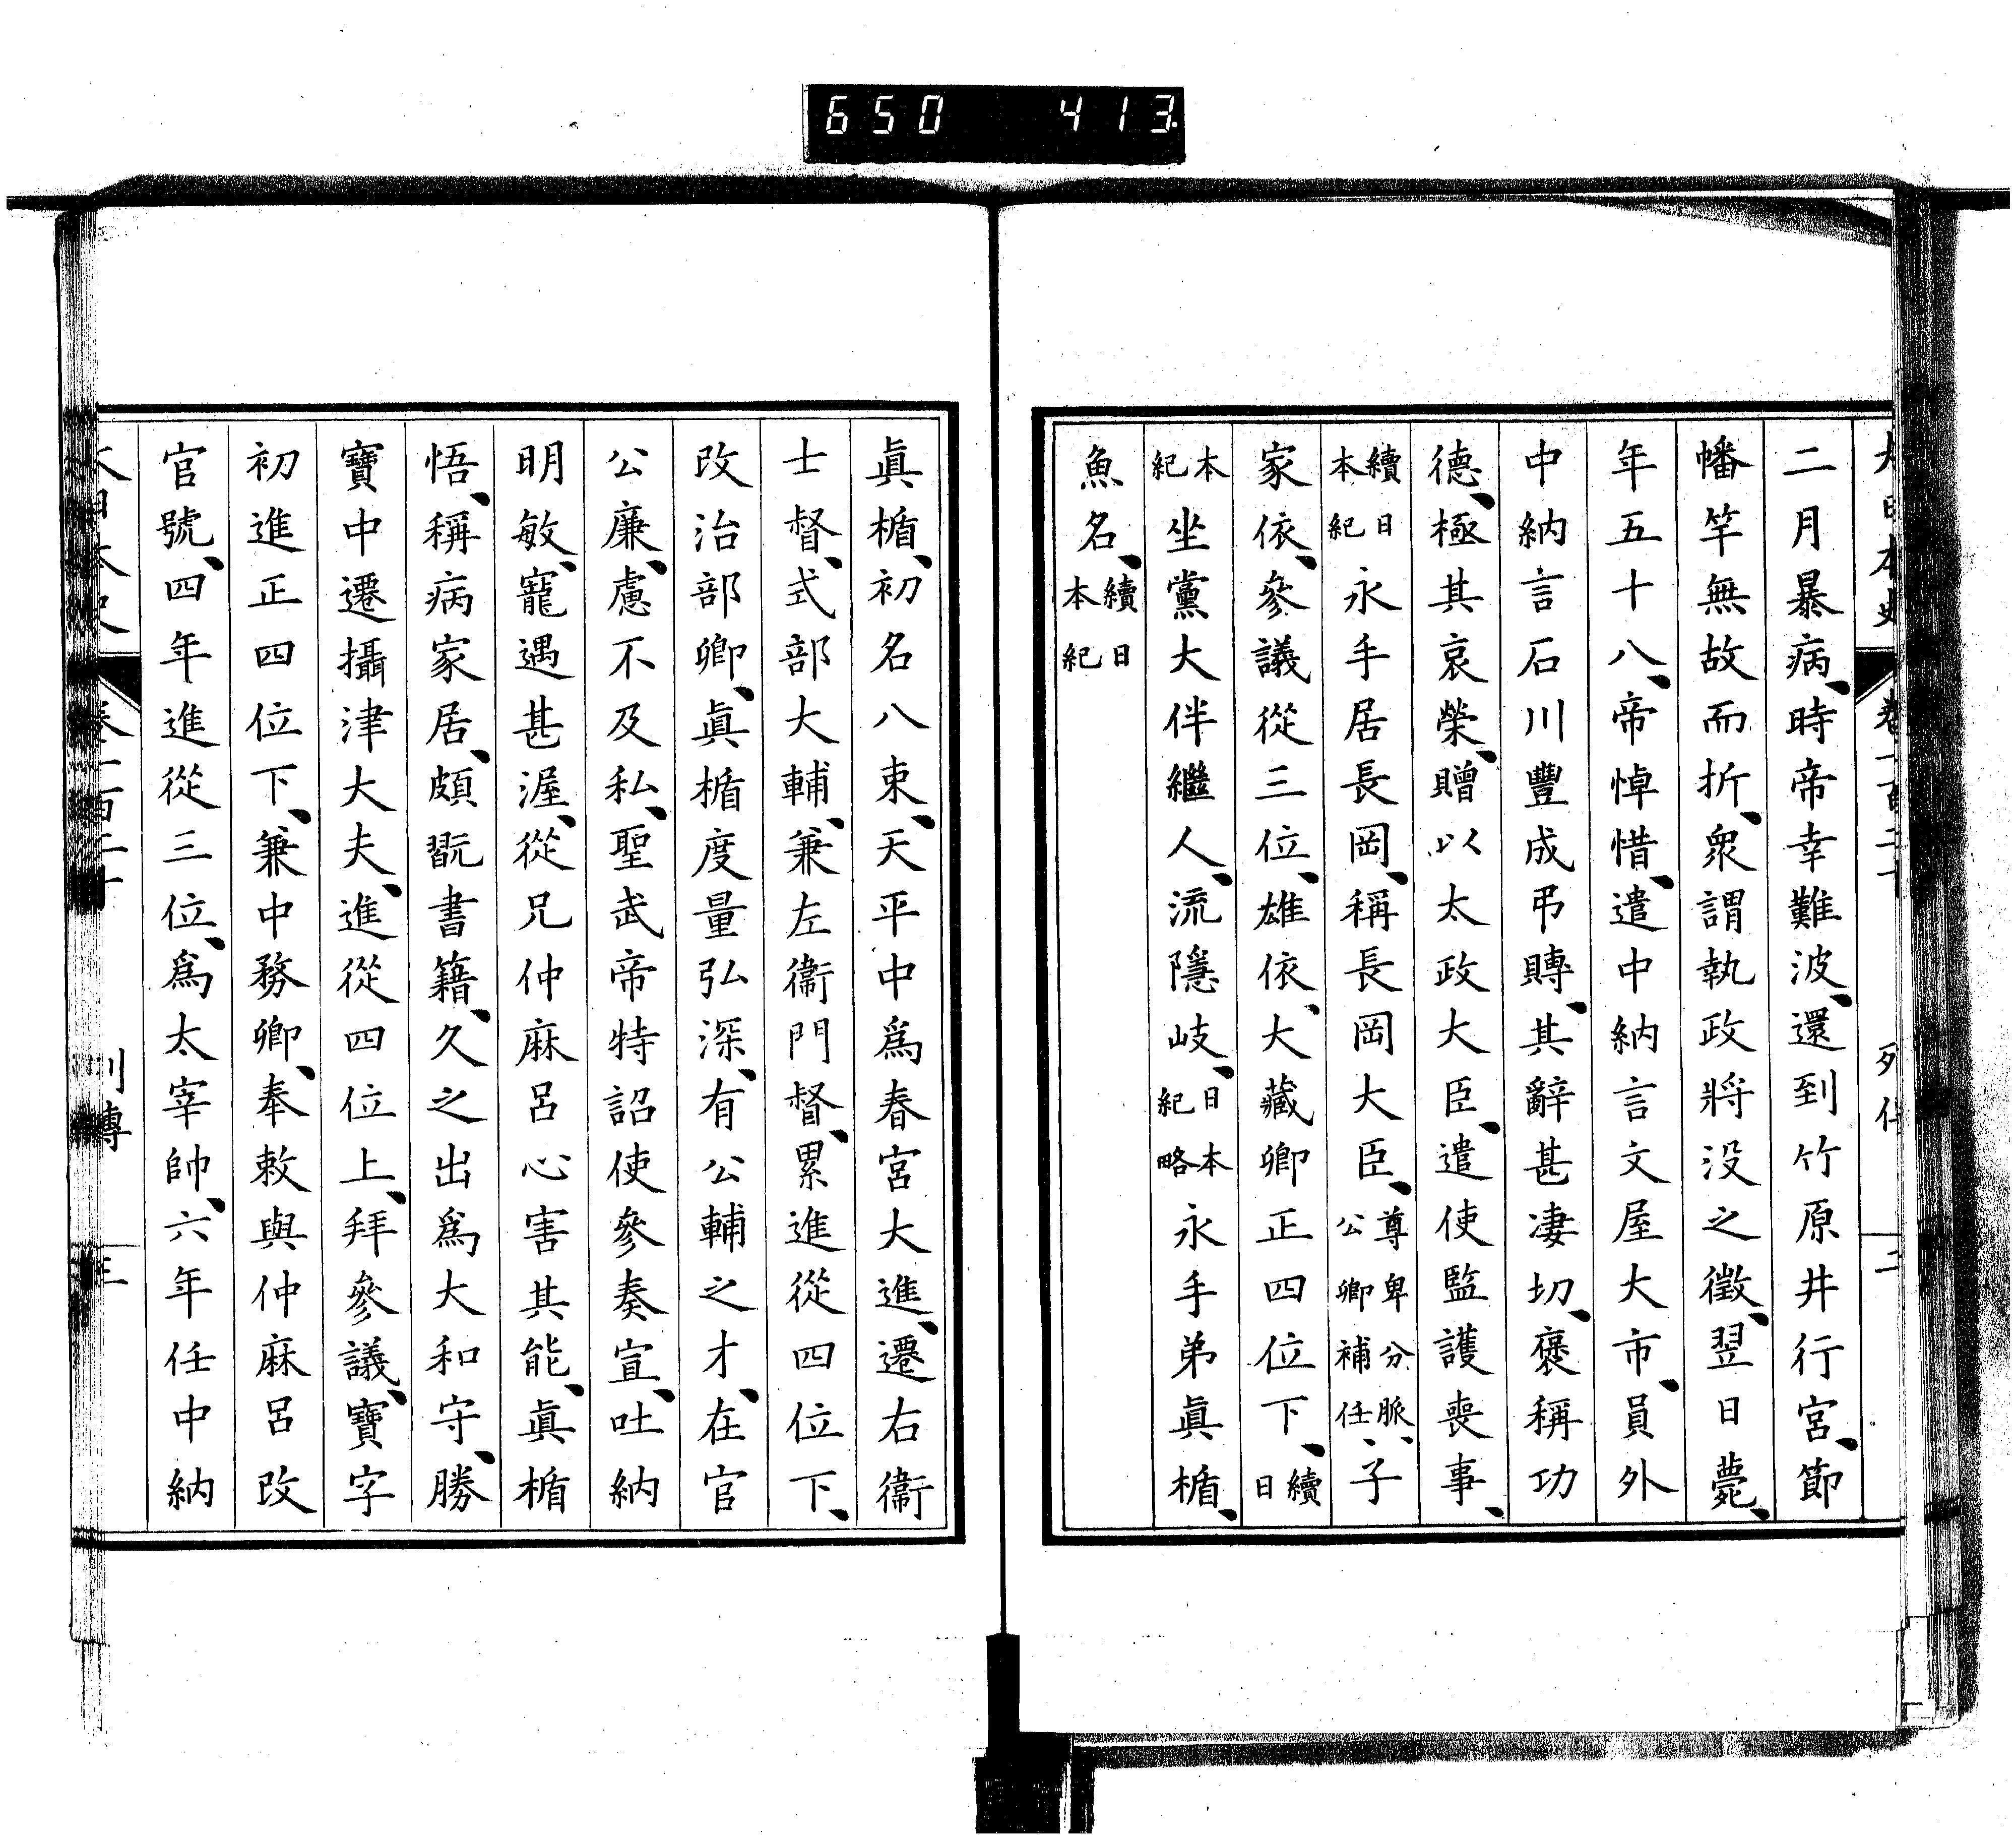 650 413.
二月暴病、時帝幸難波、還到竹原井行宮、節
幡竿無故而折、衆謂執政將没之徵、翌日薨、
年五十八、帝悼惜、遣中納言文屋大市、員外
中納言石川豐成弔賻、其辭甚凄切、襃稱功
德、極其哀榮、贈以太政大臣、遣使監護喪事、
續日本紀永手居長岡、稱長岡大臣、尊卑分脈、公卿補任、子
家依、參議從三位、雄依、大藏卿正四位下、續日
本紀坐黨大伴繼人、流隱岐、日本紀略永手弟眞楯、
魚名、續日本紀
眞楯、初名八束、天平中爲春宮大進、遷右衞
士督、式部大輔、兼左衞門督、累進從四位下、
改治部卿、眞楯度量弘深、有公輔之才、在官
公廉、慮不及私、聖武帝特詔使參奏宣、吐納
明敏、寵遇甚渥、從兄仲麻呂心害其能、眞楯
悟、稱病家居、頗翫書籍、久之出爲大和守、勝
寶中遷攝津大夫、進從四位上、拜參議、寶字
初進正四位下、兼中務卿、奉敕與仲麻呂改
官號、四年進從三位、爲太宰帥、六年任中納